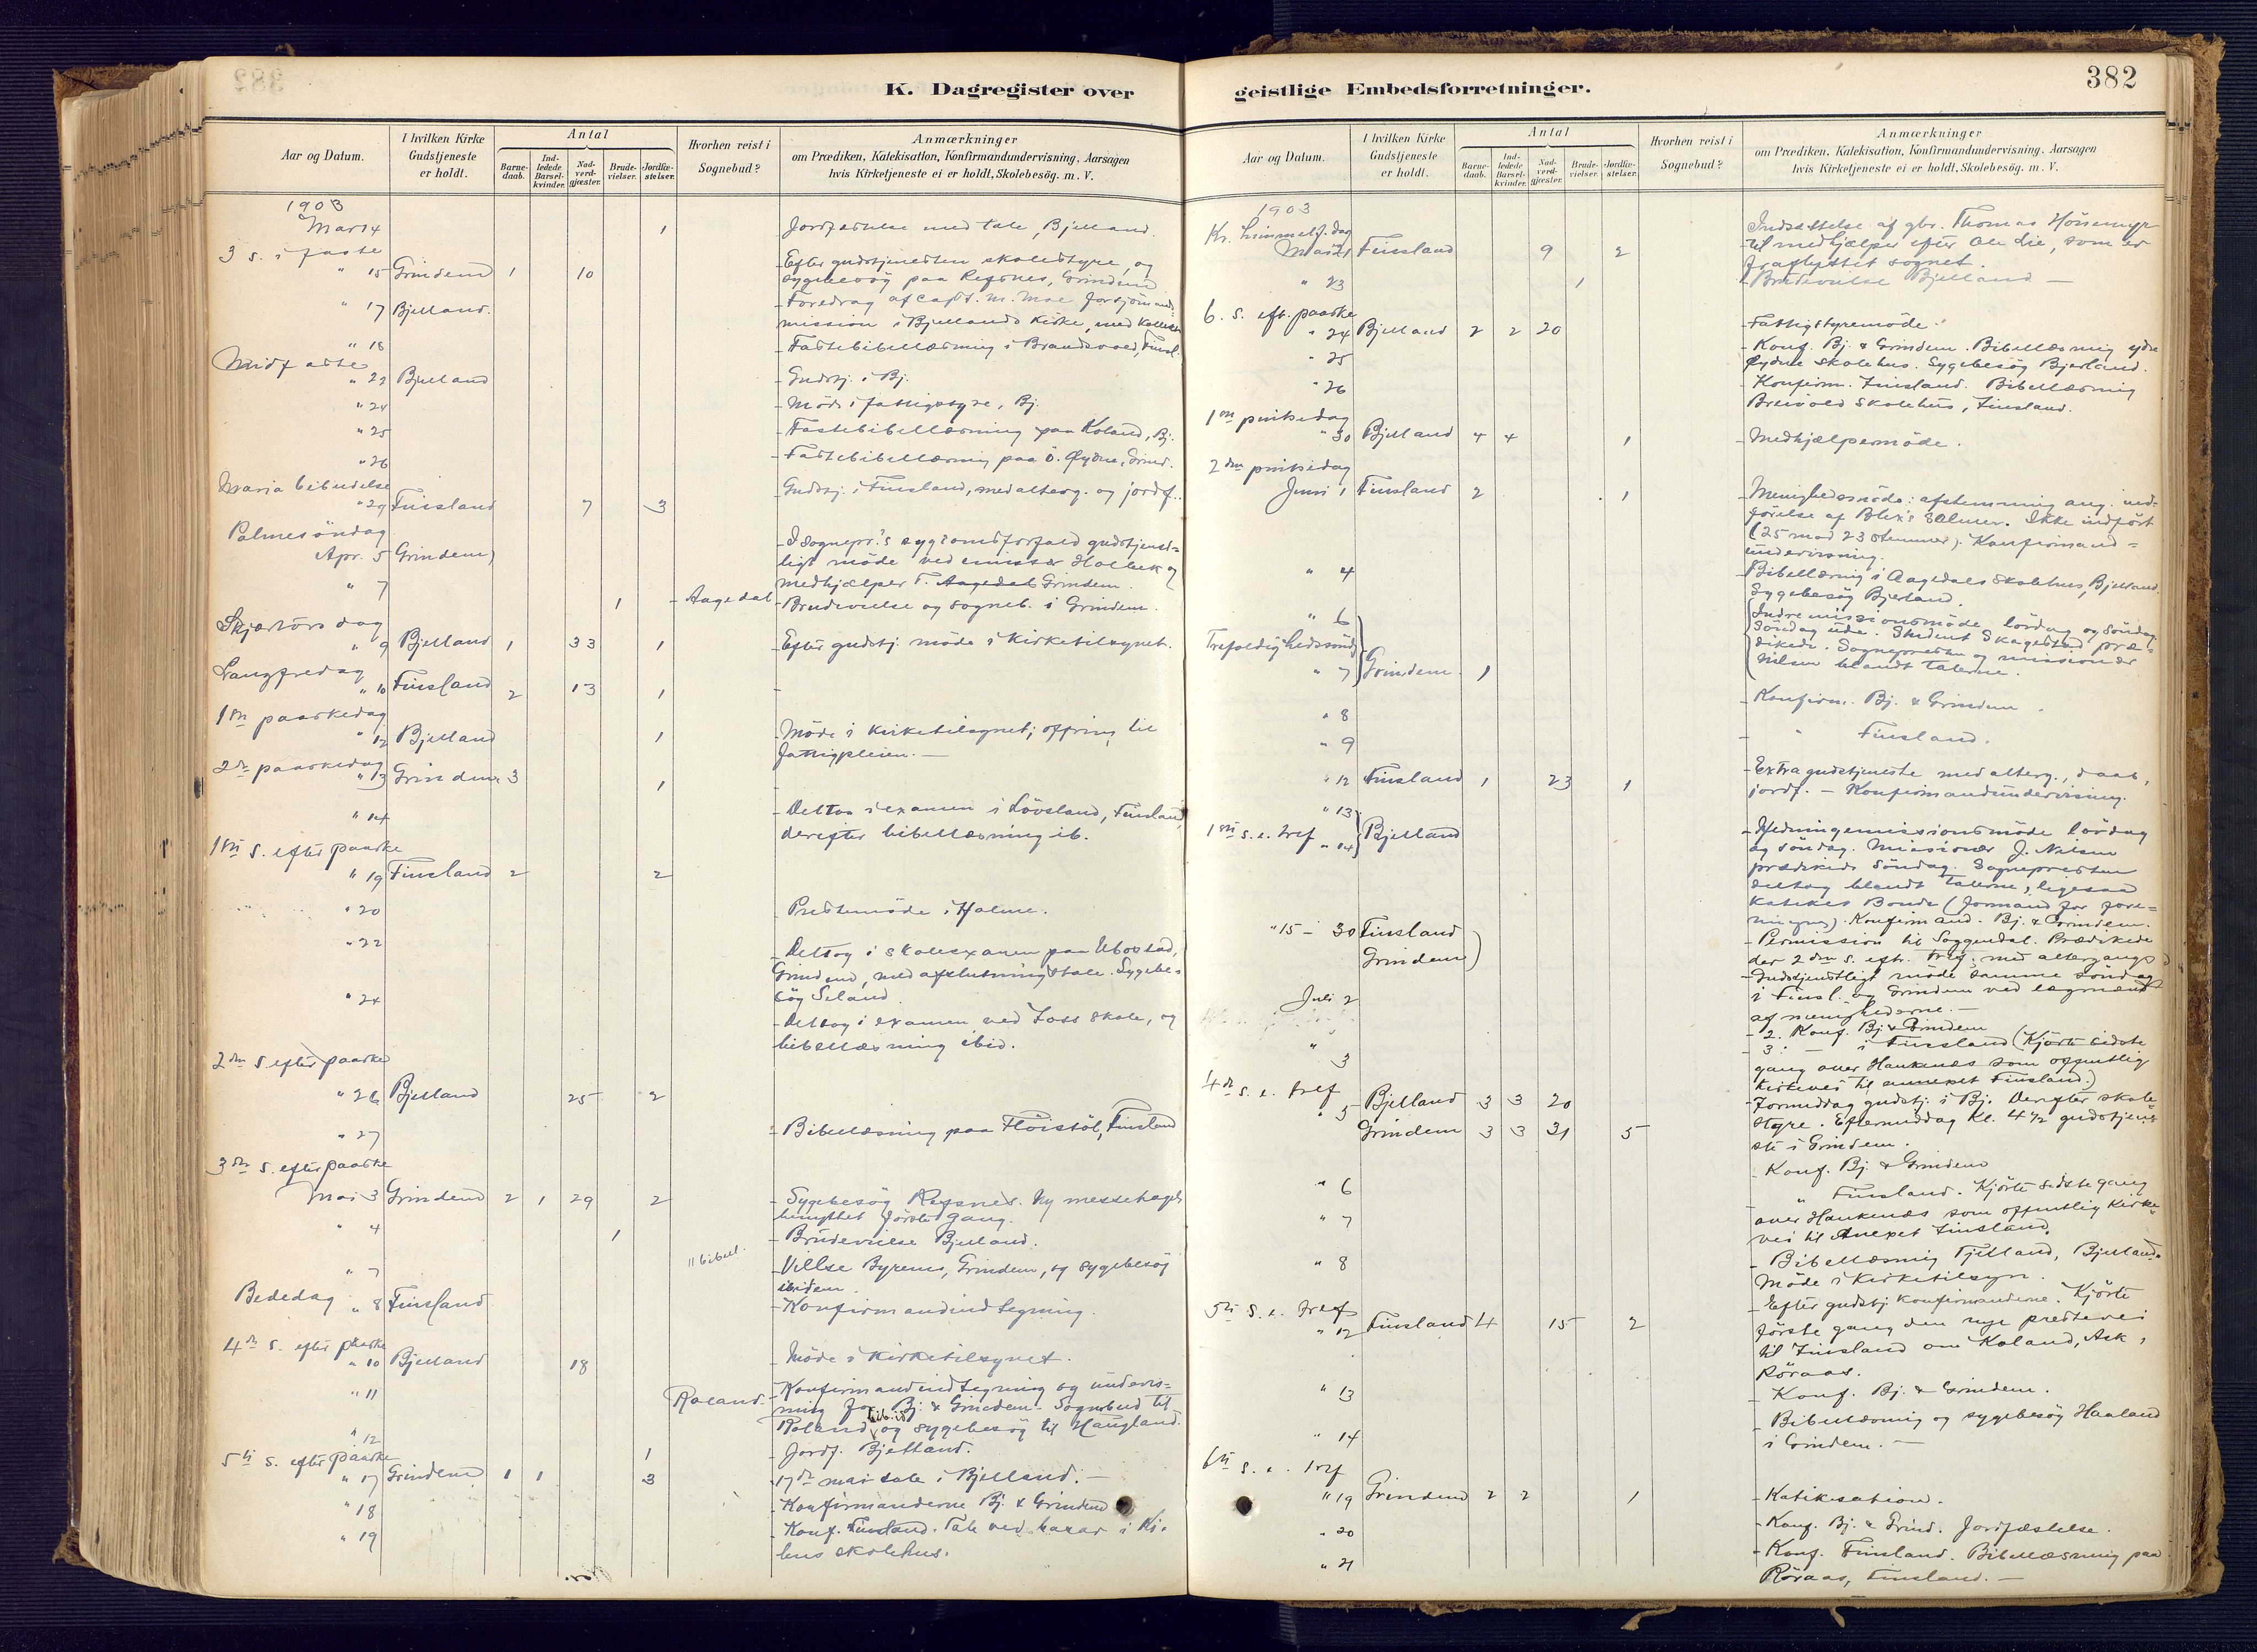 K. Dagregister over
Aar og Datum.
I hvilken Kirke Gudstjeneste er holdt.
Antal
Barne-daab.
Ind-ledede Barsel-kvinder.
Nad-verd-gjæster.
Brude-vielser.
Jordfæ-stelser.
Hvorhen reist i Sognebud?
Anmærkninger
om Prædiken, Katekisation, Konfirmandundervisning, Aarsagen
hvis Kirketjeneste ei er holdt, Skolebesög. m. V.
1903
Mars 14 1 Jordfæstelse med tale, Bjelland.
3 s. i faste
" 15 Grindem 1 10 - Efter gudstjenesten skolestyre, og
sygebesög paa Refsnes, Grindem
" 17 Bjelland. - Foredrag af Capt. M. Moe for sjömands
mission i Bjellands Kirke, med Kollekt
" 18 - Fastebibellæsning i Brandsvold, Finsl.
Midfaste
" 22 Bjelland - Gudstj. i Bj.
" 24 - Möde i fattigstyre, Bj.
" 25 - Fastebibellæsning paa Koland, Bj.
" 26 - Fastebibellæsning paa Ö. Öydne, Grind.
Maria bebudelse
" 29 Finsland 7 3 - Gudstj. i Finsland, med alterg. og jordf.
Palmesöndag
Apr. 5 Grindem - I sognepr.'s sygdomsforfald gudstjenst-
ligt möde ved emissær Holbek og
medhjælper T. Aagedal Grindem.
" 7 1 - Aagedal - Brudevielse og sogneb. i Grindem.
Skjærtorsdag
" 9 Bjelland 1 33 1 - Efter gudstj. möde i Kirketilsynet.
Langfredag
" 10 Finsland 2 13 1 -
1ste paaskedag
" 12 Bjelland 1 - Möde i Kirketilsynet; offring til
fattigpleien. —
2den paaskedag
" 13 Grindem 3 1 -
" 14 - Deltog i examen i Lövsland, Finsland,
derefter bibellæsning ib.
1ste s. efter paaske
" 19 Finsland 2 2
" 20 - Prestemöde i Holme.
" 22 - Deltog i skoleexamen paa Ubostad,
Grindem, med afslutningstale. Sygebe-
sög Seland
" 24 - Deltog i examen ved Foss skole, og
bibellæsning ibid.
2den s. efter paaske
" 26 Bjelland 25 2
" 27 - Bibellæsning paa Flöistöl, Finsland
3die s. efter paaske
Mai 3 Grindem 2 1 29 2 - Sygebesög Refsnes. Ny messehagel
benyttet förste gang.
" 4 1 - Brudevielse Bjelland.
" 7 " bibell. - Villse Byremo, Grindem, og sygebesög
ibidem.
Bededag " 8 Finsland - Konfirmandindtegning.
4de s. efter paaske
" 10 Bjelland 18 - Möde i Kirketilsynet.
" 11 Roland - Konfirmandindtegning og undervis-
ning for Bj. & Grindem. Sognebud til
Roland og sygebesög til Haugland.
" 12 1 - Jordf. Bjelland.
5te s. efter paaske
" 17 Grindem 1 1 3 - 17de mai tale i Bjelland. —
" 18 - Konfirmanderne Bj. & Grindem
" 19 - Konf. Finsland. Tale ved basar i Ki-
lens skolehus.
geistlige Embedsforretninger.
382
Aar og Datum.
I hvilken Kirke Gudstjeneste er holdt.
Antal
Barne-daab.
Ind-ledede Barsel-kvinder.
Nad-verd-gjæster.
Brude-vielser.
Jordfæ-stelser.
Hvorhen reist i Sognebud?
Anmærkninger
om Prædiken, Katekisation, Konfirmandundervisning, Aarsagen
hvis Kirketjeneste ei er holdt, Skolebesög. m. V.
1903
Kr. himmelf. dag
Mai 21 Finsland 9 2 Indsættelse af gbr. Thomas Hönnemyr
til medhjælper efter Ole Lie, som er
fraflyttet sognet.
" 23 1 - Brudevielse Bjelland —
6. s. eft. paaske
" 24 Bjelland 2 2 20 - Fattigstyremöde.
" 25 - Konf. Bj. & Grindem. Bibellæsning ydre
Öydne skolehus. Sygebesög Bjerland.
" 26 - Konfirm. Finsland. Bibellæsning
Breivold skolehus, Finsland.
1ste pintsedag
" 30 Bjelland 4 4 1 - Medhjælpermöde.
2den pintsedag
Juni 1 Finsland 2 1 - Menighedsmöde: afstemning ang. ind-
förelse af Blix's salmer. Ikke indfört
(25 mod 23 stemmer). Konfirmand-
undervisning.
" 4 - Bibellæsning i Aagedals skolehus, Bjelland.
Sygebesög Bjerland.
" 6 Indremissionsmöde lördag og söndag.
Söndag ude. Student Skagestad præ-
dikede. Sognepresten og missionær
Nilsen blandt talerne.
Trefoldighedssönd.
" 7 Grindem 1
" 8 - Konfirm. Bj. & Grindem
" 9 - " Finsland.
" 12 Finsland 1 23 1 - Extragudstjeneste med alterg., daab,
jordf. - Konfirmandundervisning.
" 13
1ste s. e. tref " 14 Bjelland - Hedningemissionsmöde lördag
og söndag. Missionær J. Nilsen
prædikede söndag. Sognepresten
deltog blandt talerne, ligesaa
Kateket Bonde (formand for fore-
ningen). Konfirmand. Bj. & Grindem.
" 15 - 30 Finsland
Grindem - Permission til Soggendal. Prædikede
der 2den s. eft. tref. med altergang
- Gudstjenstligt möde samme söndag
i Finsl. og Grindem ved lægmænd
af menighederne. —
Juli 2 - 2. Konf. Bj. & Grindem
" 3 - 3. — i Finsland (Kjörte sidste
gang over Haukenæs som offentlig
kirkevei til annexet Finsland.)
4de s. e. tref
" 5 Bjelland 3 3 20 - Formiddag gudstj. i Bj. Derefter skole-
Grindem 3 3 31 5 styre. Eftermiddag Kl. 4½ gudstjene-
ste i Grindem.
" 6 - Konf. Bj. & Grindem
" 7 " Finsland. Kjörte sidste gang
over Haukenæs som offentlig Kirke-
vei til Anexet Finsland.
" 8 - Bibellæsning Tjelland, Bjelland.
Möde i Kirketilsyn.
5te s. e. tref
" 12 Finsland 4 15 2 - Efter gudstj. konfirmanderne. Kjörte
förste gang den nye prestevei
til Finsland om Koland, Ask,
Röraas.
" 13 - Konf. Bj. & Grindem.
" 14 - Bibellæsning og sygebesög Haaland
i Grindem. —
6te s. e. tref
" 19 Grindem 2 2 1 - Katekisation.
" 20 - Konf. Bj. & Grind. Jordfæstelse.
" 21 - Konf. Finsland. Bibellæsning paa
Röraas, Finsland. —